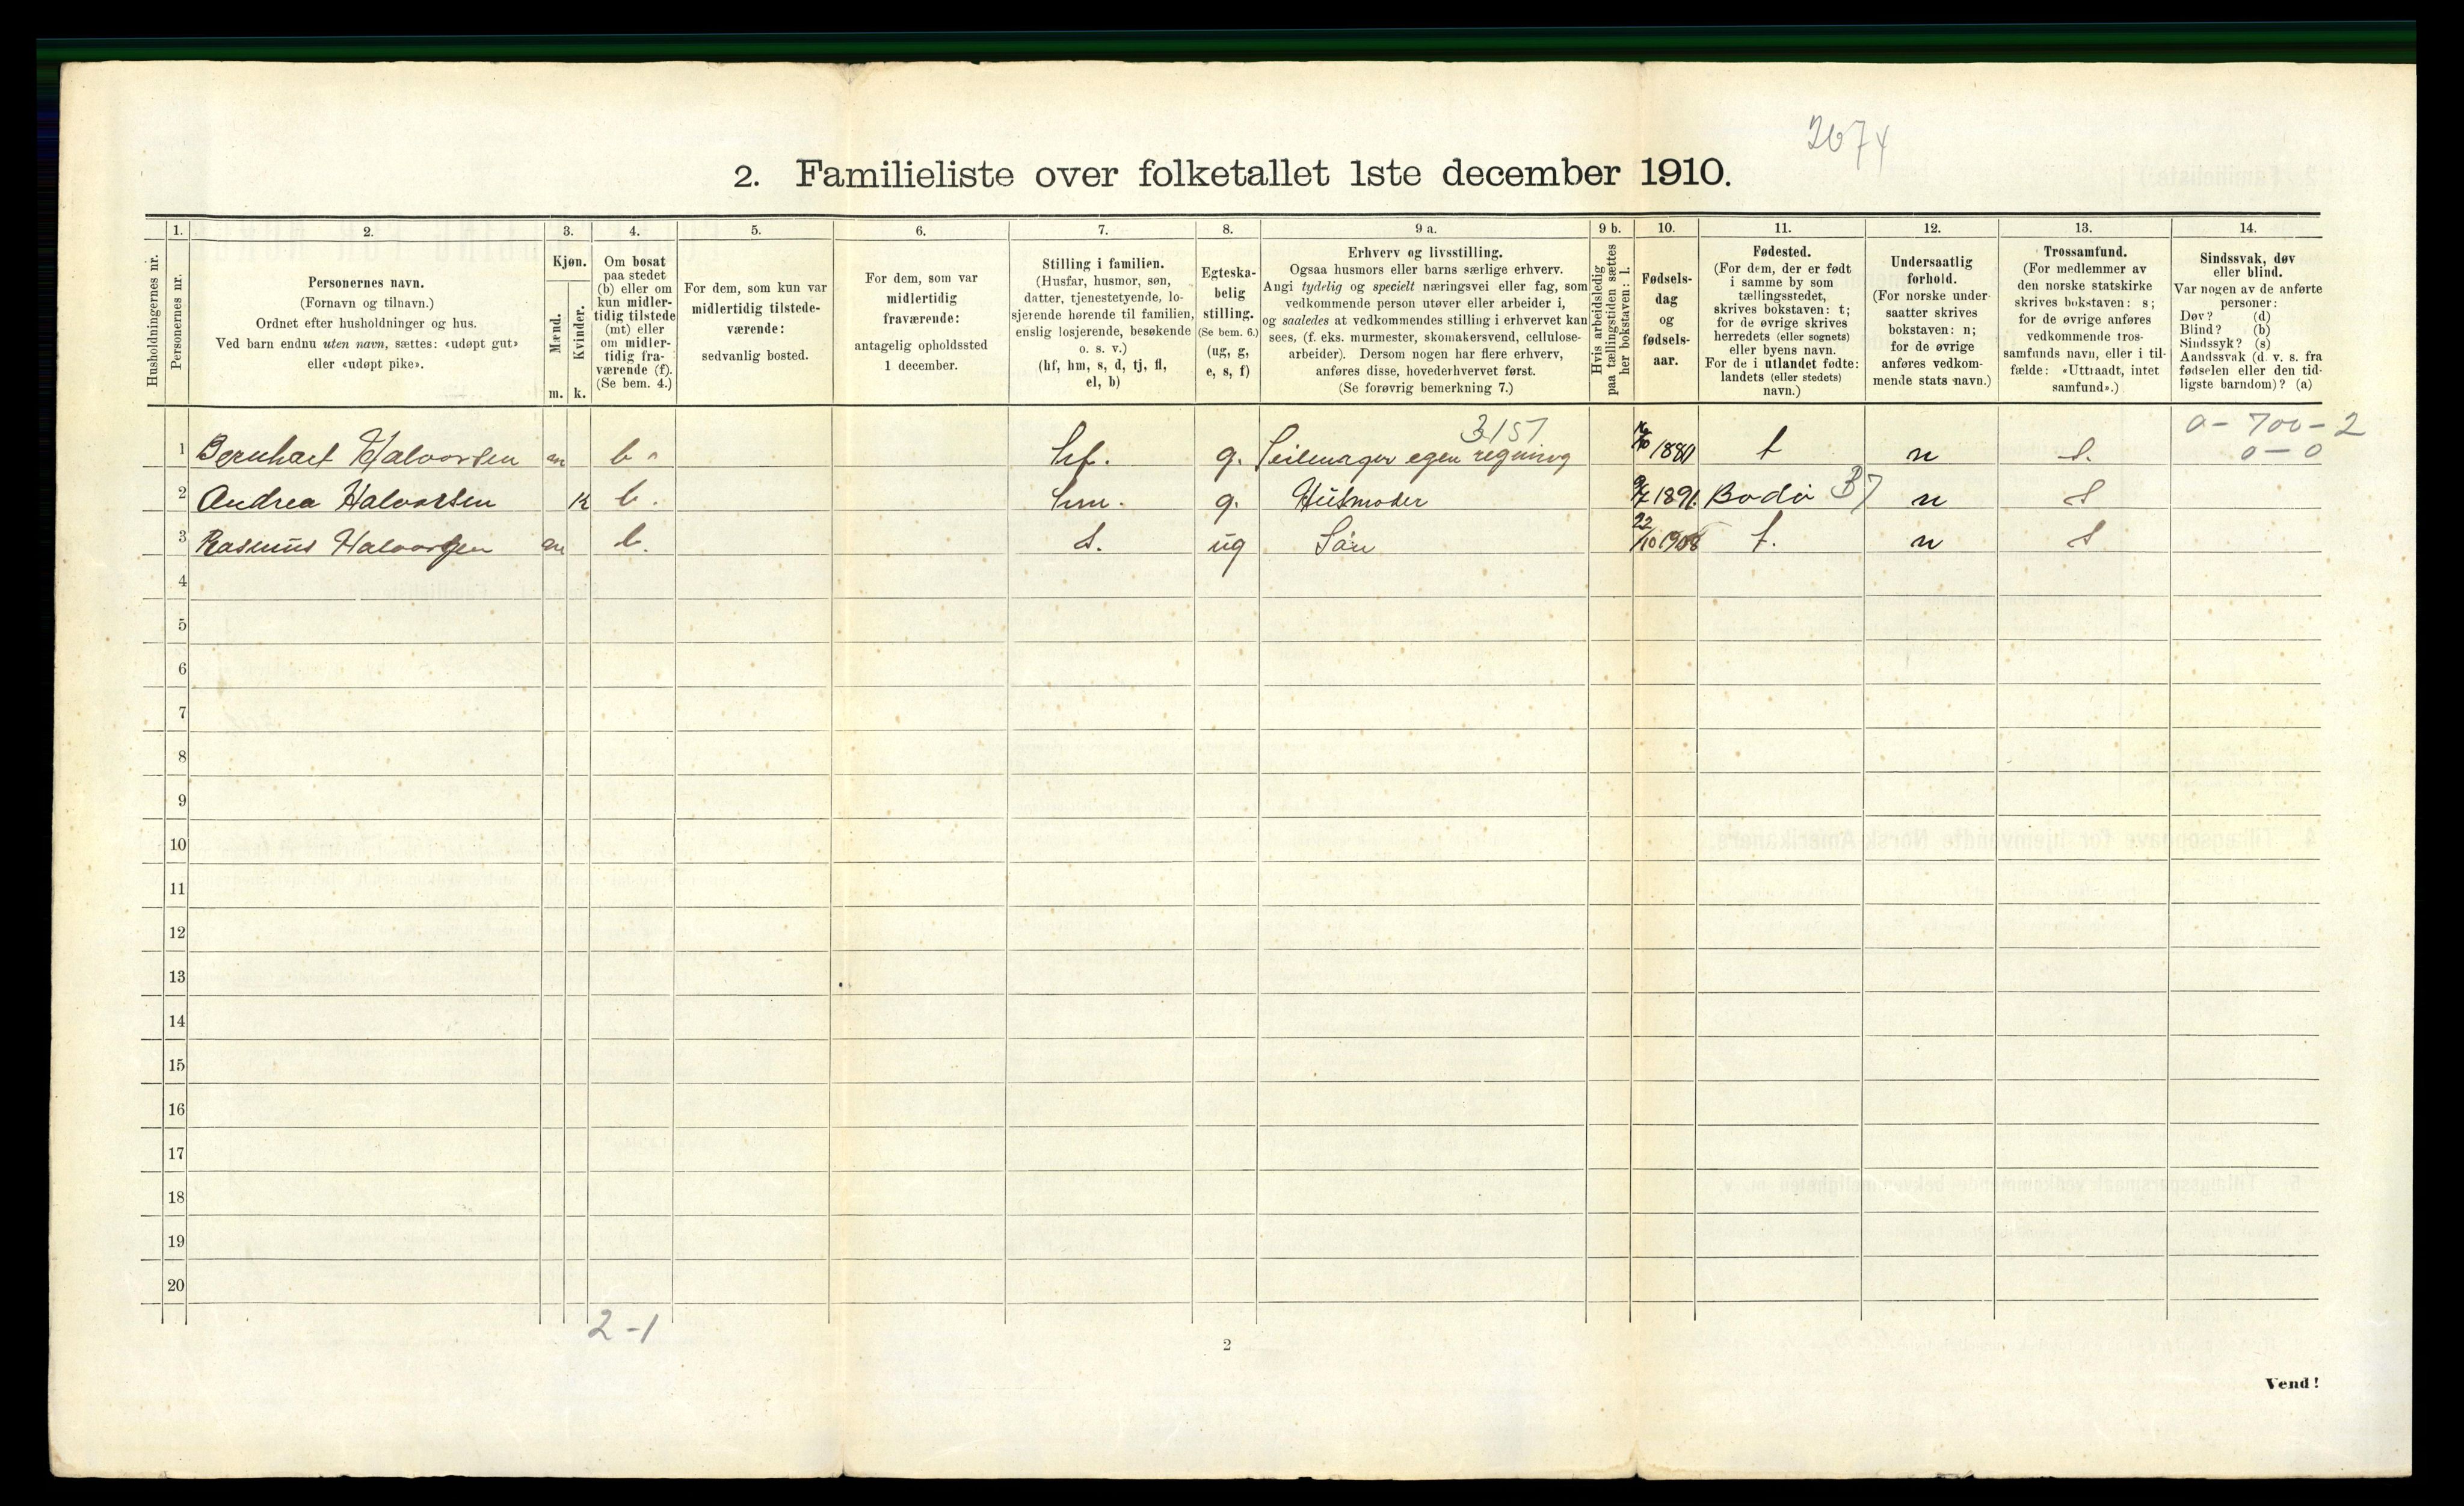 2674
2. Familieliste over folketallet 1ste december 1910.
Husholdningernes nr.
1.
Personernes nr.
2.
Personernes navn.
(Fornavn og tilnavn.)
Ordnet efter husholdninger og hus.
Ved barn endnu uten navn, sættes: «udøpt gut»
eller «udøpt pike».
3.
Kjøn.
Mænd.
Kvinder.
m. k.
4.
Om bosat
paa stedet
(b) eller om
kun midler-
tidig tilstede
(mt) eller
om midler-
tidig fra-
værende (f).
(Se bem. 4.)
5.
For dem, som kun var
midlertidig tilstede-
værende:
sedvanlig bosted.
6.
For dem, som var
midlertidig
fraværende:
antagelig opholdssted
1 december.
7.
Stilling i familien.
(Husfar, husmor, søn,
datter, tjenestetyende, lo-
sjerende hørende til familien,
enslig losjerende, besøkende
o. s. v.)
(hf, hm, s, d, tj, fl,
el, b)
8.
Egteska-
belig
stilling.
(Se bem. 6.)
(ug, g,
e, s, f)
9 a.
Erhverv og livsstilling.
Ogsaa husmors eller barns særlige erhverv.
Angi tydelig og specielt næringsvei eller fag, som
vedkommende person utøver eller arbeider i,
og saaledes at vedkommendes stilling i erhvervet kan
sees, (f. eks. murmester, skomakersvend, cellulose-
arbeider). Dersom nogen har flere erhverv,
anføres disse, hovederhvervet først.
(Se forøvrig bemerkning 7.)
9 b.
Hvis arbeidsledig
paa tællingstiden sættes
her bokstaven: l.
10.
Fødsels-
dag
og
fødsels-
aar.
11.
Fødested.
(For dem, der er født
i samme by som
tællingsstedet,
skrives bokstaven: t;
for de øvrige skrives
herredets (eller sognets)
eller byens navn.
For de i utlandet fødte:
landets (eller stedets)
navn.)
12.
Undersaatlig
forhold.
(For norske under-
saatter skrives
bokstaven: n;
for de øvrige
anføres vedkom-
mende stats navn.)
13.
Trossamfund.
(For medlemmer av
den norske statskirke
skrives bokstaven: s;
for de øvrige anføres
vedkommende tros-
samfunds navn, eller i til-
fælde: «Uttraadt, intet
samfund».)
14.
Sindssvak, døv
eller blind.
Var nogen av de anførte
personer:
Døv? (d)
Blind? (b)
Sindssyk? (s)
Aandssvak (d. v. s. fra
fødselen eller den tid-
ligste barndom)? (a)
3157
0-700-2
0-0
1 Bernhart Halvorsen m b. hf. g. Seilmager egen regning 1880 t n s.
2 Andrea Halvorsen k b. hm. g. Husmoder 1891. Bodö 37 n s
3 Rasmus Halvorsen m b. s. ug Sön 22/10 1908 t. n s
4
5
6
7
8
9
10
11
12
13
14
15
16
17
18
19
20
2-1
2
Vend!